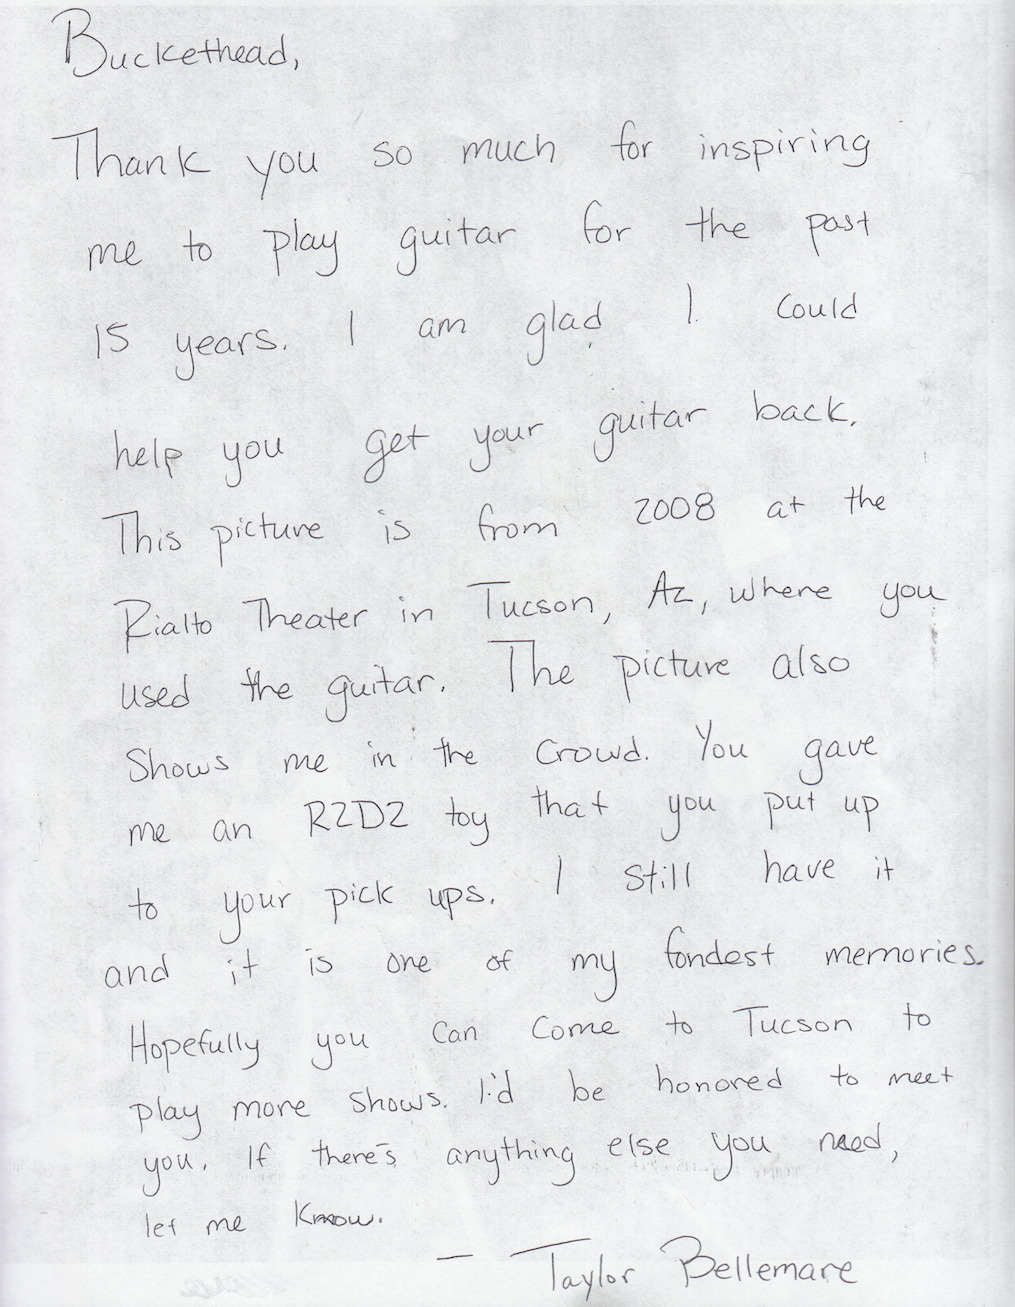 Buckethead,
Thank you so much for inspiring
me to play guitar for the past
15 years. I am glad I could
help you get your guitar back.
This picture is from 2008 at the
Rialto Theater in Tucson, Az, where you
used the guitar. The picture also
shows me in the crowd. You gave
me an R2D2 toy that you put up
to your pick ups. I still have it
and it is one of my fondest memories.
Hopefully you can come to Tucson to
play more shows. I'd be honored to meet
you. If there's anything else you need,
let me know.
- Taylor Bellemare